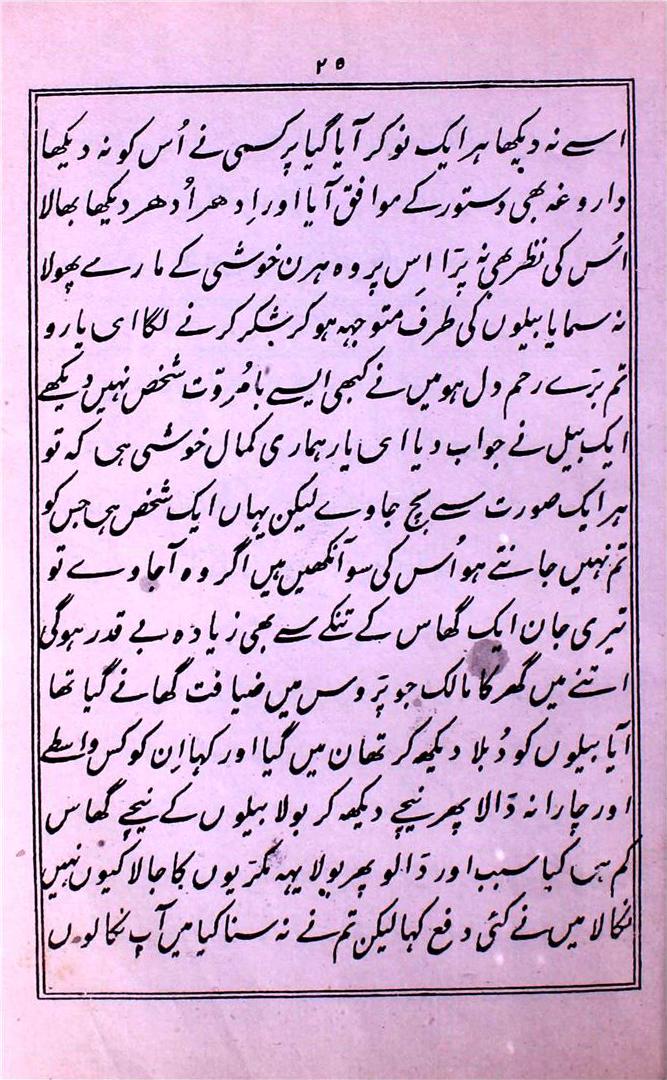 ۲۵
اسے نہ دیکھا ہر ایک نوکر آیا گیا پر کسی نے اُس کو نہ دیکھا
داروغہ بھی دستور کے موافق آیا اور اِدھر اُدھر دیکھا بھالا
اُس کی نظر بھی نہ پڑا اِس پر وہ ہرن خوشی کے مارے پھولا
نہ سمایا بیلوں کی طرف متوجہہ ہوکر شکر کرنے لگا ای یارو
تم بڑے رحم دل ہو میں نے کبھی ایسے بامُروّت شخص نہیں دیکھے
ایک بیل نے جواب دیا ای یار ہماری کمال خوشی ہی کہ تو
ہر ایک صورت سے بچ جاوے لیکن یہاں ایک شخص ہی جس کو
تم نہیں جانتے ہو اُس کی سو آنکھیں ہیں اگر وہ آجاوے تو
تیری جان ایک گھاس کے تنکے سے بھی زیادہ بے قدر ہوگی
اتنے میں گھر کا مالک جو پڑوس میں ضیافت کھانے گیا تھا
آیا بیلوں کو دُبلا دیکھ کر تھان میں گیا اور کہا اِن کو کس واسطے
اور چارا نہ ڈالا پھر نیچے دیکھ کر بولا بیلوں کے نیچے گھاس
کم ہی کیا سبب اور ڈالو پھر بولا یہہ مکڑیوں کا جالا کیوں نہیں
نکالا میں نے کئی دفع کہا لیکن تم نے نہ سنا کیا میں آپ نکالوں